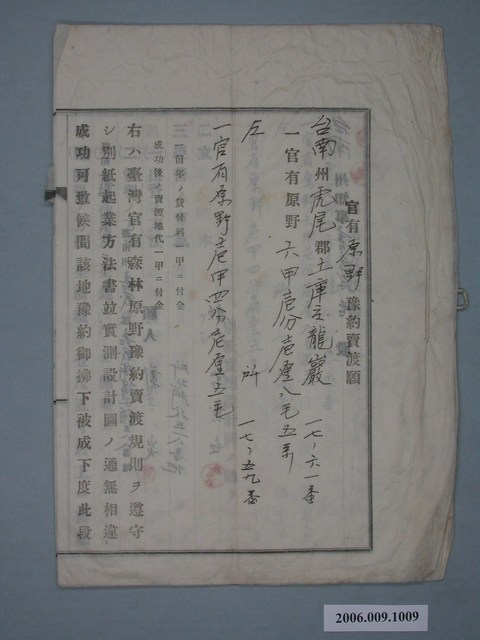 官有原野豫約賣渡願
台南州虎尾郡土庫庄龍巖 一七ノ六一番
一官有原野 六甲壱分壱厘八毛五糸
左 仝 所 一七ノ五九番
一官有原野壱甲四分壱厘五毛
一前築ノ貸付料一甲ニ付金
成功後ノ賣渡地代一甲ニ付金
右ハ臺灣官有森林原野豫約賣渡規則ヲ遵守
シ別紙起業方法書竝實測設計圖ノ通無相違
成功可致候間該地豫約御拂下被成下度此段
2006.009.1009